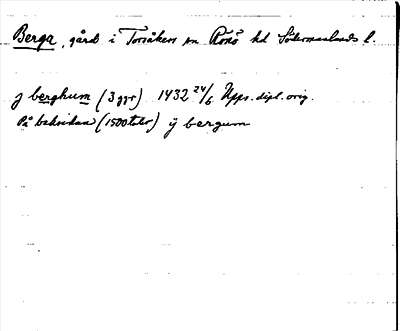 Berga, gård i Torsåkers sn Rönö hd Södermanlands l.
j berghum (3 ggr) 1432 24/6 Upps. dipl. orig.
På baksidan (1500talet) ÿ bergum